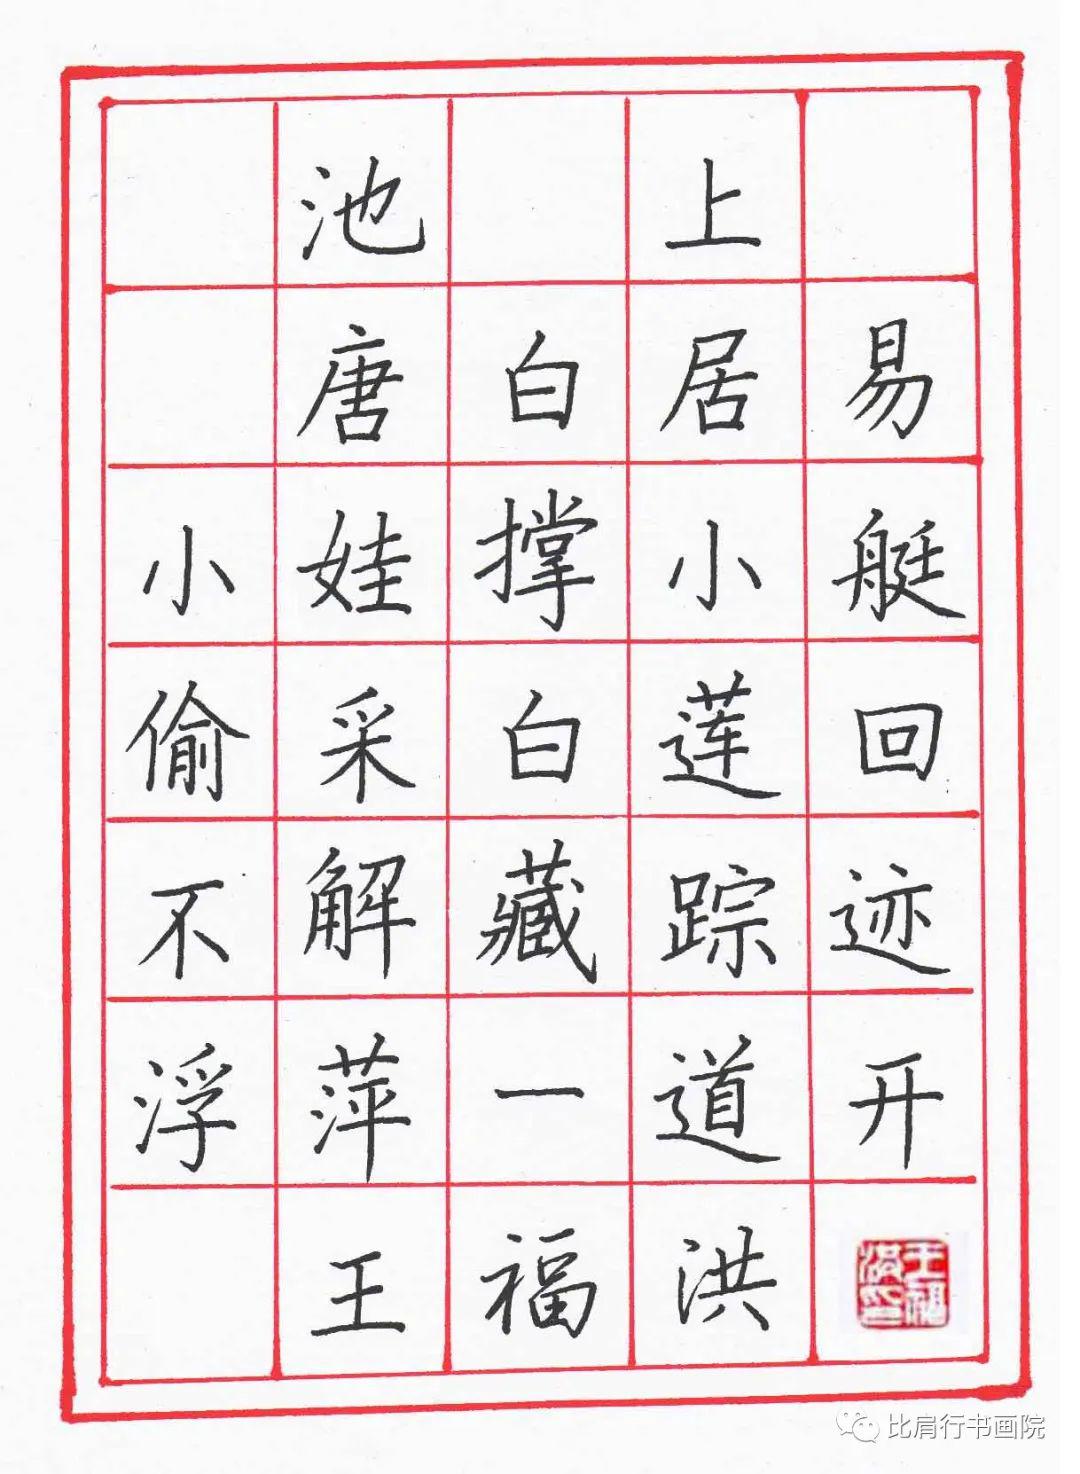 池上
唐 白居易
小娃撑小艇
偷采白莲回
不解藏踪迹
浮萍一道开
王福洪
王福洪印
比肩行书画院